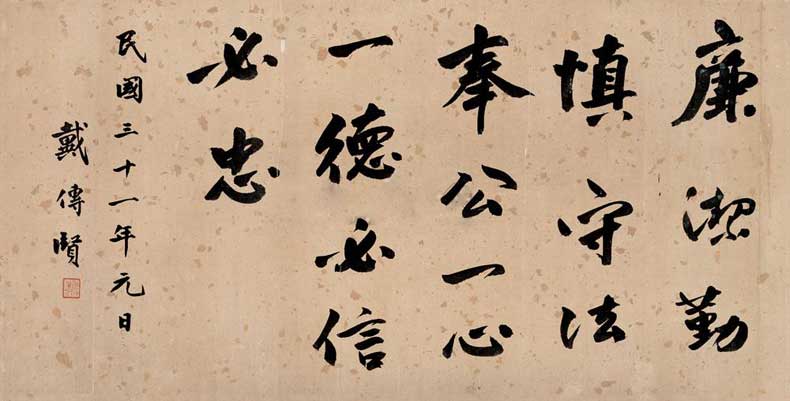 廉潔勤
慎守法
奉公一心
一德必信
必忠
民國三十一年元日
戴傳賢